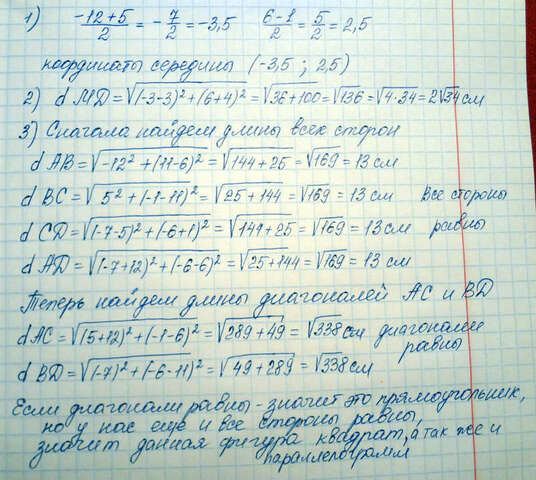 1) (-12+5)/2 = -7/2 = -3,5   (6-1)/2 = 5/2 = 2,5
координаты середины (-3,5 ; 2,5)
2) d MD = √((-3-3)² + (6+4)²) = √(36+100) = √136 = √(4·34) = 2√34 см
3) Сначала найдем длины всех сторон
d AB = √(-12² + (11-6)²) = √(144+25) = √169 = 13 см
d BC = √(5² + (-1-11)²) = √(25+144) = √169 = 13 см   Все стороны
d CD = √((-7-5)² + (-6+1)²) = √(144+25) = √169 = 13 см   равны
d AD = √((-7+12)² + (-6-6)²) = √(25+144) = √169 = 13 см
Теперь найдем длины диагоналей AC и BD
d AC = √((5+12)² + (-1-6)²) = √(289+49) = √338 см   диагонали
равны
d BD = √((-7)² + (-6-11)²) = √(49+289) = √338 см
Если диагонали равны - значит это прямоугольник,
но у нас еще и все стороны равны,
значит данная фигура квадрат, а так же и
параллелограмм